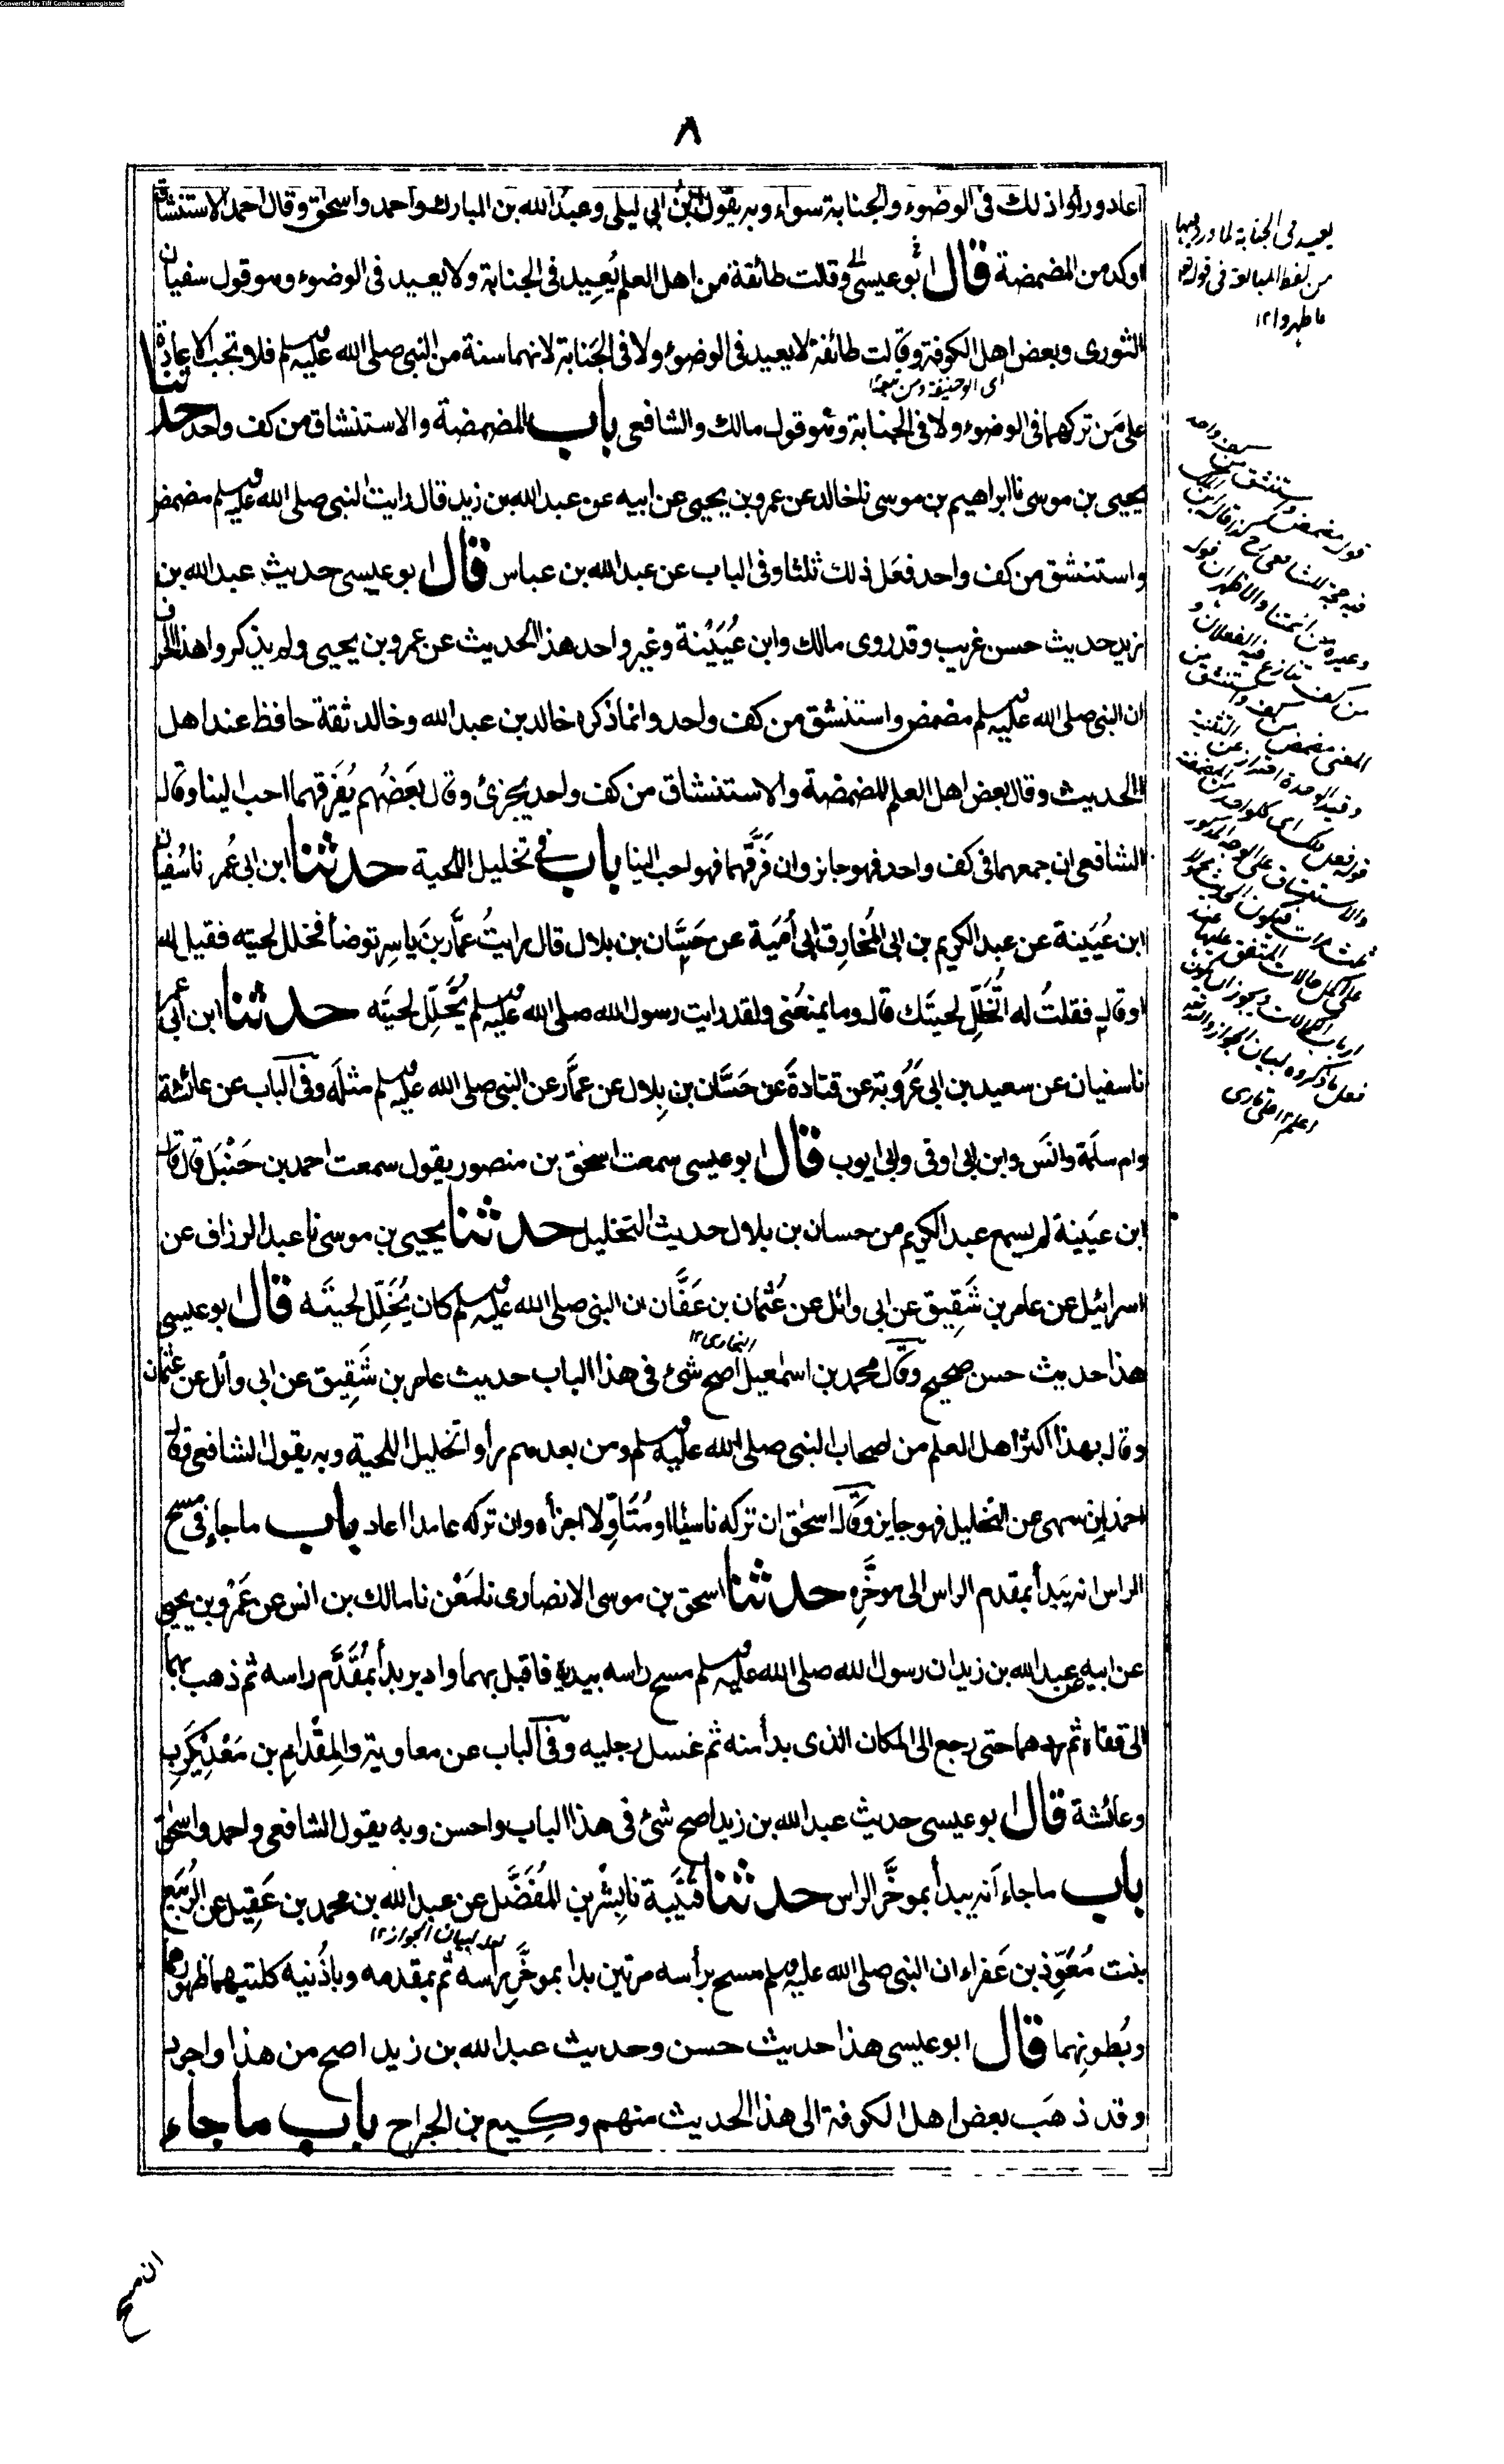 Converted by Tiff Combine - unregistered
٨
اعاد وراوا ذلك فى الوضوء والجنابة سواء وبه يقول ابن ابي ليلى وعبد الله بن المبارك واحمد واسحق وقال احمد الاستنشاق
اوكد من المضمضة قال ابو عيسى وقالت طائفة من اهل العلم يُعِيد فى الجنابة ولا يعيد فى الوضوء وهو قول سفيان
الثورى وبعض اهل الكوفة وقالت طائفة لا يعيد فى الوضوء ولا فى الجَنابة لانهما سنة من النبي صلى الله عليه وسلم فلا تجب الاعادة
اى ابو حنيفة ومن تبعه١٢
على مَن تركهما فى الوضوء ولا فى الجنابة وهو قول مالك والشافعى باب المضمضة والاستنشاق من كف واحد حدثنا
يحيى بن موسى نا ابراهيم بن موسى نا خالد عن عمرو بن يحيى عن ابيه عن عبد الله بن زيد قال رايت النبي صلى الله عليه وسلم مضمض
واستنشق من كف واحد فعَل ذلك ثلثا وفى الباب عن عبد الله بن عباس قال ابو عيسى حديث عبد الله بن
زيد حديث حسن غريب وقد روى مالك وابن عُيَيْنة وغير واحد هذا الحديث عن عمرو بن يحيى ولم يذكروا هذا الحرف
ان النبي صلى الله عليه وسلم مضمض واستنشق من كف واحد وانما ذكره خالد بن عبد الله وخالد ثقة حافظ عند اهل
الحديث وقال بعض اهل العلم المضمضة والاستنشاق من كف واحد يجزئ وقال بَعَضُهم يُفَرقهما احب الينا وقال
الشافعى ان جمعهما فى كف واحد فهو جائز وان فَرَّقهما فهو احب الينا باب فى تخليل اللحية حدثنا ابن ابى عُمر نا سُفيان
ابن عُيَينة عن عبد الكريم بن ابى المُخارِق ابى أُمَية عن حَسَّان بن بلال قال رايتُ عمَّار بنَ ياسِر توضأ فخلل لحيته فقيل له
او قال فقلتُ له أتُخَلِّل لحيتَك قال وما يمنعُنى ولقد رايت رسول الله صلى الله عليه وسلم يُخَلِّل لحيتَه حدثنا ابن ابى عمر
نا سفيان عن سعيد بن ابى عَرُوبة عن قتادةَ عن حَسَّان بن بِلال عن عمَّار عن النبي صلى الله عليه وسلم مثلَه وفى الباب عن عائشة
وام سلَمة وانَس وابن ابى اوفى وابى ايوب قال ابو عيسى سمعت اسحٰق بن منصور يقول سمعت احمد بن حَنْبَل قال قال
ابن عيَينة لم يسمع عبد الكريم من حسان بن بلال حديث التخليل حدثنا يحيى بن موسى نا عبد الرزاق عن
اسرائيل عن عامر بن شَقِيق عن ابى وائل عن عُثمان بن عَفَّان ان النبي صلى الله عليه وسلم كان يُخَلِّل لحيتَه قال ابو عيسى
البخارى١٢
هذا حديث حسن صحيح وقال محمد بن اسمٰعيل اصح شئ فى هذا الباب حديث عامر بن شَقِيق عن ابى وائل عن عثمان
وقال بهذا اكثر اهل العلم من اصحاب النبي صلى الله عليه وسلم ومن بعدهم راوا تخليل اللحية وبه يقول الشافعى وقال
احمد ان سهى عن التخليل فهو جايز وقال اسحٰق ان تركه ناسيًا او مُتَأَوِّلا اجزأه وان تركه عامدا اعاد باب ما جاء فى مسح
الراس انه يَبدأ بمقدم الراس الى موخَّرِه حدثنا اسحق بن موسى الانصارى نا مَعْن نا مالك بن انس عن عَمْرو بن يحيى
عن ابيه عن عبد الله بن زيد ان رسول الله صلى الله عليه وسلم مسح راسه بيديه فاقبل بهما وادبر بدأ بمُقَدَّم راسه ثم ذهب بهما
الى قفاه ثم ردهما حتى رجع الى المكان الذى بدأ منه ثم غسل رجليه وفى الباب عن معاوية والمِقْدامِ بن مَعْدِيكَرِب
وعائشة قال ابو عيسى حديث عبد الله بن زيد اصح شئ فى هذا الباب واحسن وبه يقول الشافعى واحمد واسحٰق
باب ما جاء انه يبدأ بموخَّر الراس حدثنا قُتَيْبة نا بِشْر بن المُفَضَّل عن عبد الله بن محمد بن عَقِيل عن الرُبَيِّع
لعله لبيان الجواز١٢
بنت مُعَوِّذ بن عَفراء ان النبي صلى الله عليه وسلم مسح برأسه مرتين بدا بموخَّرِ رأسه ثم بمقدمه وباُذُنيه كلتيهما ظهورهما
وبُطونِهما قال ابو عيسى هذا حديث حسن وحديث عبد الله بن زيد اصح من هذا واجود
وقد ذهَب بعض اهل الكوفة الى هذا الحديث منهم وكيع بن الجراح باب ما جاء
يعيد فى الجنابة لما ورد فيها
من لفظ المبالغة فى قوله تعالى
فاطهروا ١٢
قوله مضمض واستنشق من كف واحد
فيه حجة للشافعى كذا قاله ابن الملك
وغيره من ائمتنا والاظهر ان قوله
من كف تنازع فيه الفعلان و
المعنى مضمض من كف واستنشق من
وقيد الوحدة احتراز عن التثنية
قوله فعل ذلك اى كل واحد من المضمضة
والاستنشاق على الوجه المذكور
ثلث مرات فيكون الحديث محمولا
على اكمل حالات المتفق عليها عند
ارباب الكمالات ويجوز ان يكون
فعل ما ذكروه لبيان الجواز والله
اعلم ١٢ على قارى
ان مسح